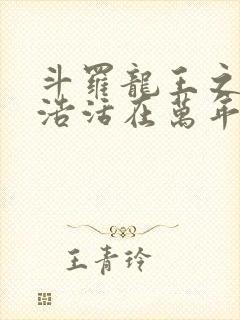 斗羅龍王之
浩活在萬年
王青玲